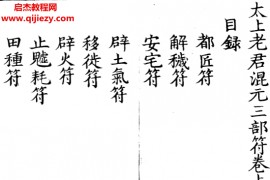 太上老君混元三部符卷上
目録
都匠符
解穢符
安宅符
辟土氣符
移徙符
辟火符
止鼠耗符
田種符
启杰教程网
www.qijiejc.com